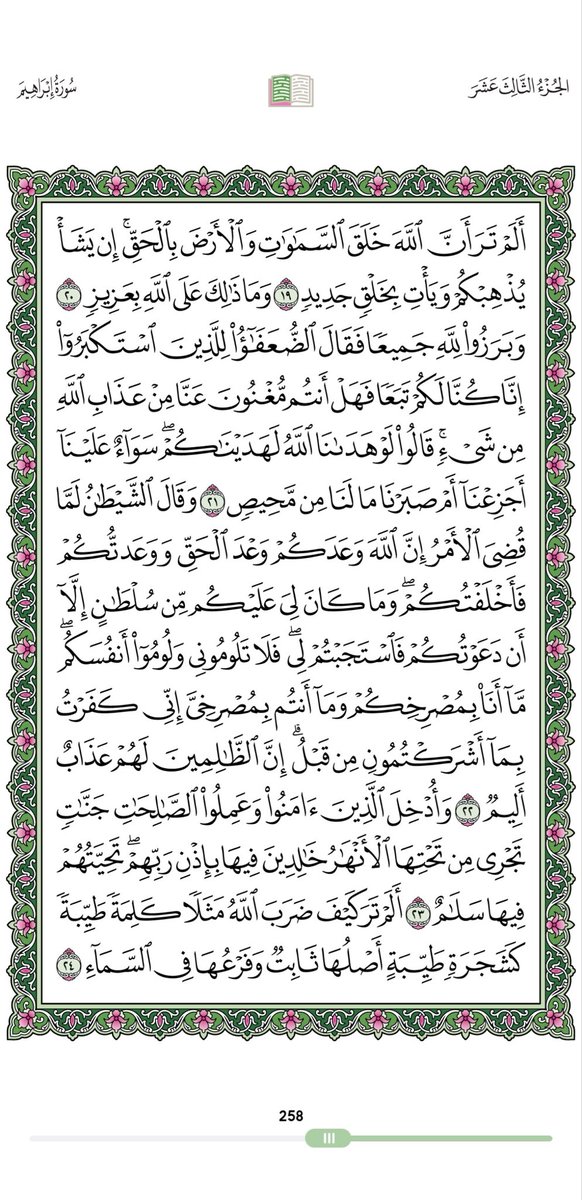 الجُزْءُ الثَّالِثَ عَشَرَ
سُورَةُ إِبْرَاهِيمَ
أَلَمْ تَرَ أَنَّ ٱللَّهَ خَلَقَ ٱلسَّمَٰوَٰتِ وَٱلْأَرْضَ بِٱلْحَقِّۚ إِن يَشَأْ
يُذْهِبْكُمْ وَيَأْتِ بِخَلْقٍ جَدِيدٍ ١٩ وَمَا ذَٰلِكَ عَلَى ٱللَّهِ بِعَزِيزٍ ٢٠
وَبَرَزُوا۟ لِلَّهِ جَمِيعًا فَقَالَ ٱلضُّعَفَٰٓؤُا۟ لِلَّذِينَ ٱسْتَكْبَرُوٓا۟
إِنَّا كُنَّا لَكُمْ تَبَعًا فَهَلْ أَنتُم مُّغْنُونَ عَنَّا مِنْ عَذَابِ ٱللَّهِ
مِن شَىْءٍۚ قَالُوا۟ لَوْ هَدَىٰنَا ٱللَّهُ لَهَدَيْنَٰكُمْۖ سَوَآءٌ عَلَيْنَآ
أَجَزِعْنَآ أَمْ صَبَرْنَا مَا لَنَا مِن مَّحِيصٍ ٢١ وَقَالَ ٱلشَّيْطَٰنُ لَمَّا
قُضِىَ ٱلْأَمْرُ إِنَّ ٱللَّهَ وَعَدَكُمْ وَعْدَ ٱلْحَقِّ وَوَعَدتُّكُمْ
فَأَخْلَفْتُكُمْۖ وَمَا كَانَ لِىَ عَلَيْكُم مِّن سُلْطَٰنٍ إِلَّآ
أَن دَعَوْتُكُمْ فَٱسْتَجَبْتُمْ لِىۖ فَلَا تَلُومُونِى وَلُومُوٓا۟ أَنفُسَكُمۖ
مَّآ أَنَا۠ بِمُصْرِخِكُمْ وَمَآ أَنتُم بِمُصْرِخِىَّ إِنِّى كَفَرْتُ
بِمَآ أَشْرَكْتُمُونِ مِن قَبْلُۗ إِنَّ ٱلظَّٰلِمِينَ لَهُمْ عَذَابٌ
أَلِيمٌ ٢٢ وَأُدْخِلَ ٱلَّذِينَ ءَامَنُوا۟ وَعَمِلُوا۟ ٱلصَّٰلِحَٰتِ جَنَّٰتٍ
تَجْرِى مِن تَحْتِهَا ٱلْأَنْهَٰرُ خَٰلِدِينَ فِيهَا بِإِذْنِ رَبِّهِمْۖ تَحِيَّتُهُمْ
فِيهَا سَلَٰمٌ ٢٣ أَلَمْ تَرَ كَيْفَ ضَرَبَ ٱللَّهُ مَثَلًا كَلِمَةً طَيِّبَةً
كَشَجَرَةٍ طَيِّبَةٍ أَصْلُهَا ثَابِتٌ وَفَرْعُهَا فِى ٱلسَّمَآءِ ٢٤
258